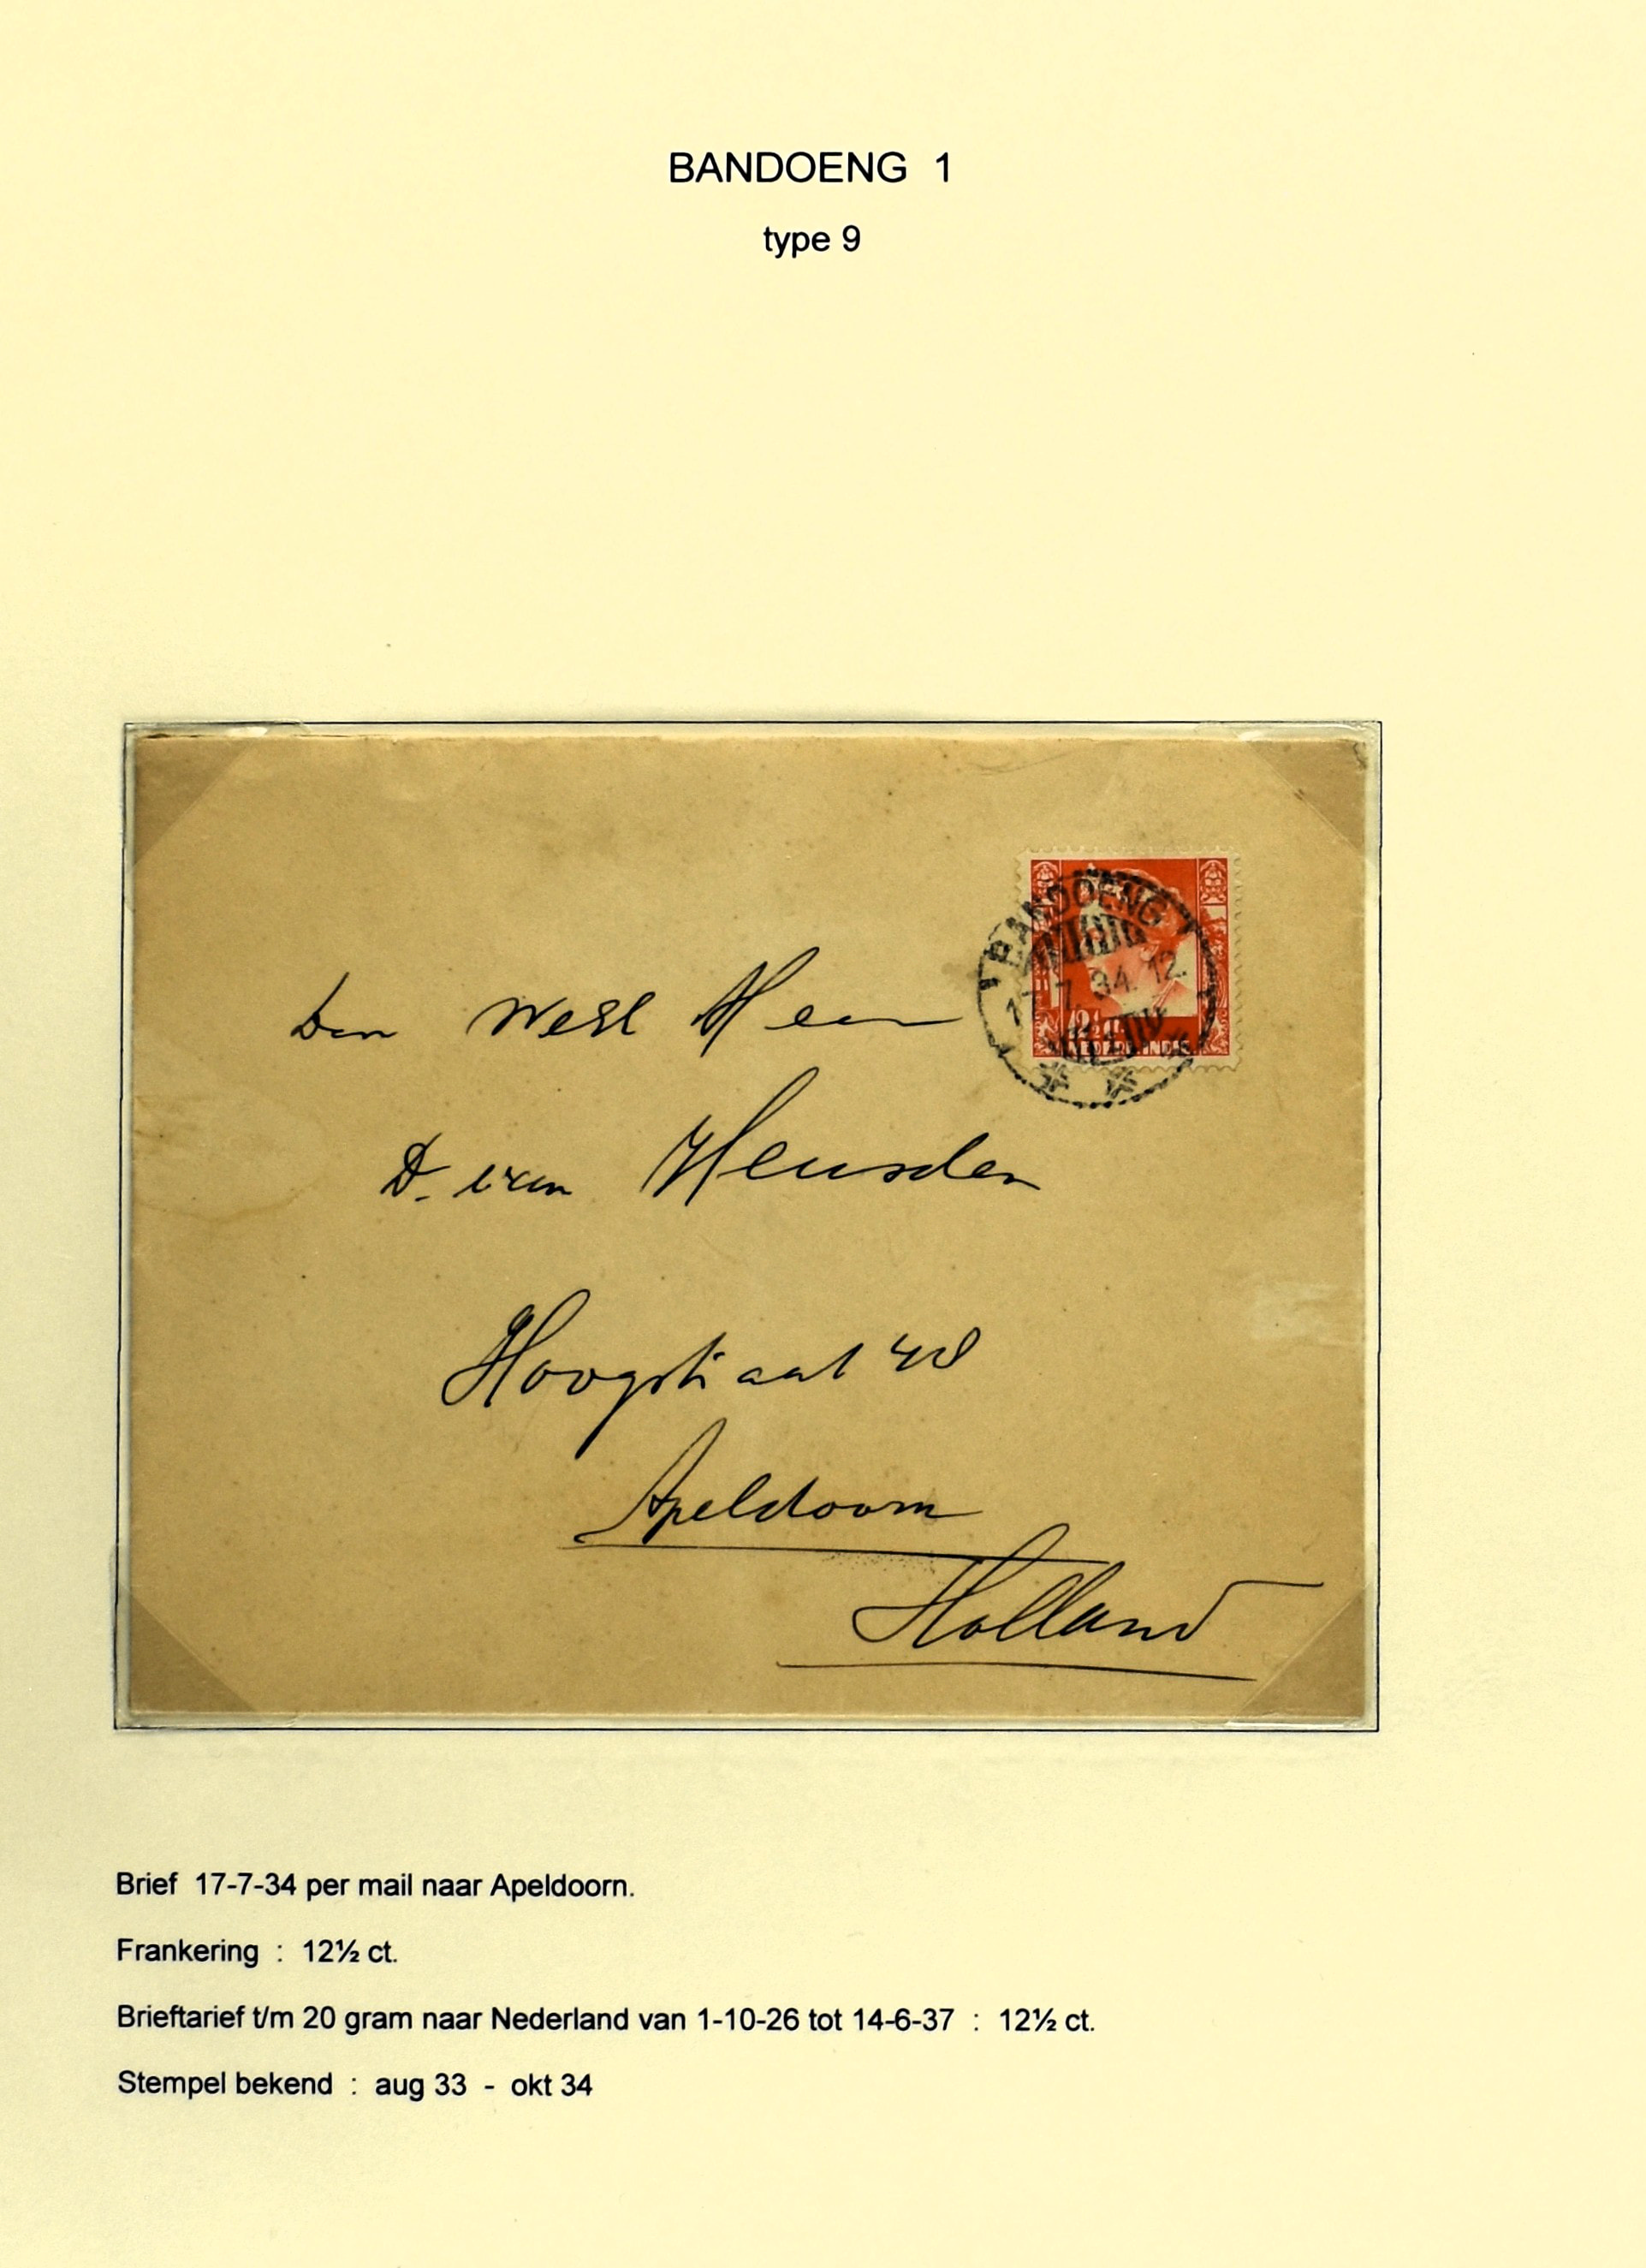 BANDOENG 1
type 9
BANDOENG
17.7.34.12.
12½
NED. INDIE
Den WelEd Heer
D. van Heusden
Hoogstraat 48
Apeldoorn
Holland
Brief 17-7-34 per mail naar Apeldoorn.
Frankering : 12½ ct.
Brieftarief t/m 20 gram naar Nederland van 1-10-26 tot 14-6-37 : 12½ ct.
Stempel bekend : aug 33 - okt 34